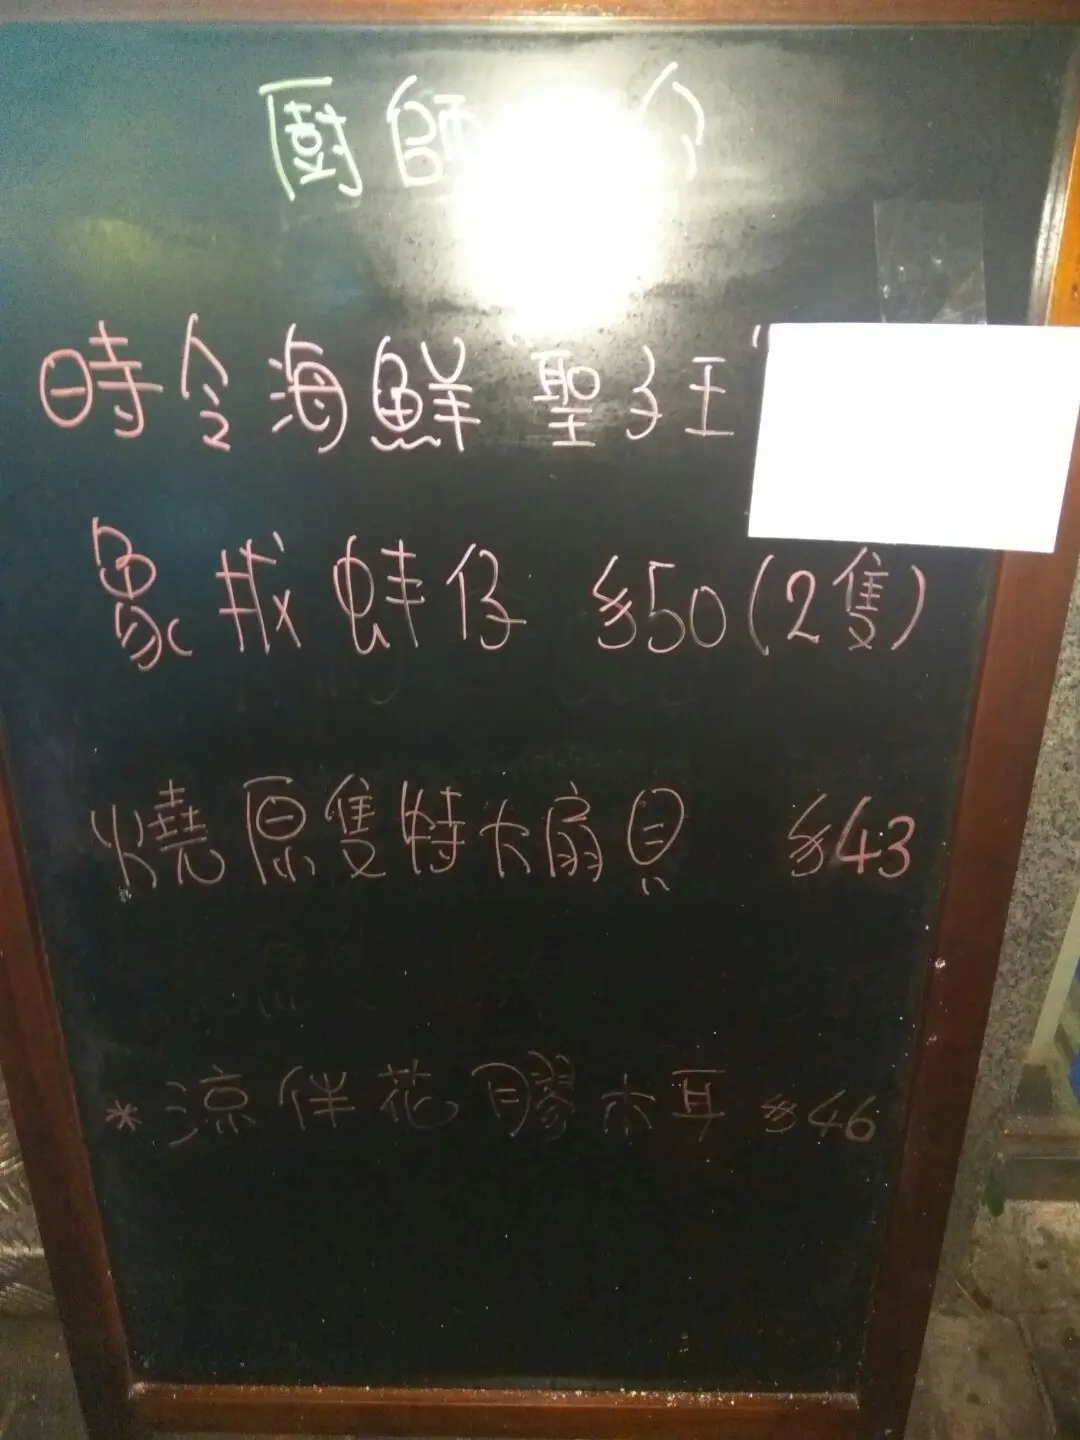 廚師 介
時令海鮮"聖子王"
象拔蚌仔 $50(2隻)
燒原隻特大扇貝 $43
*涼伴花膠木耳 $46